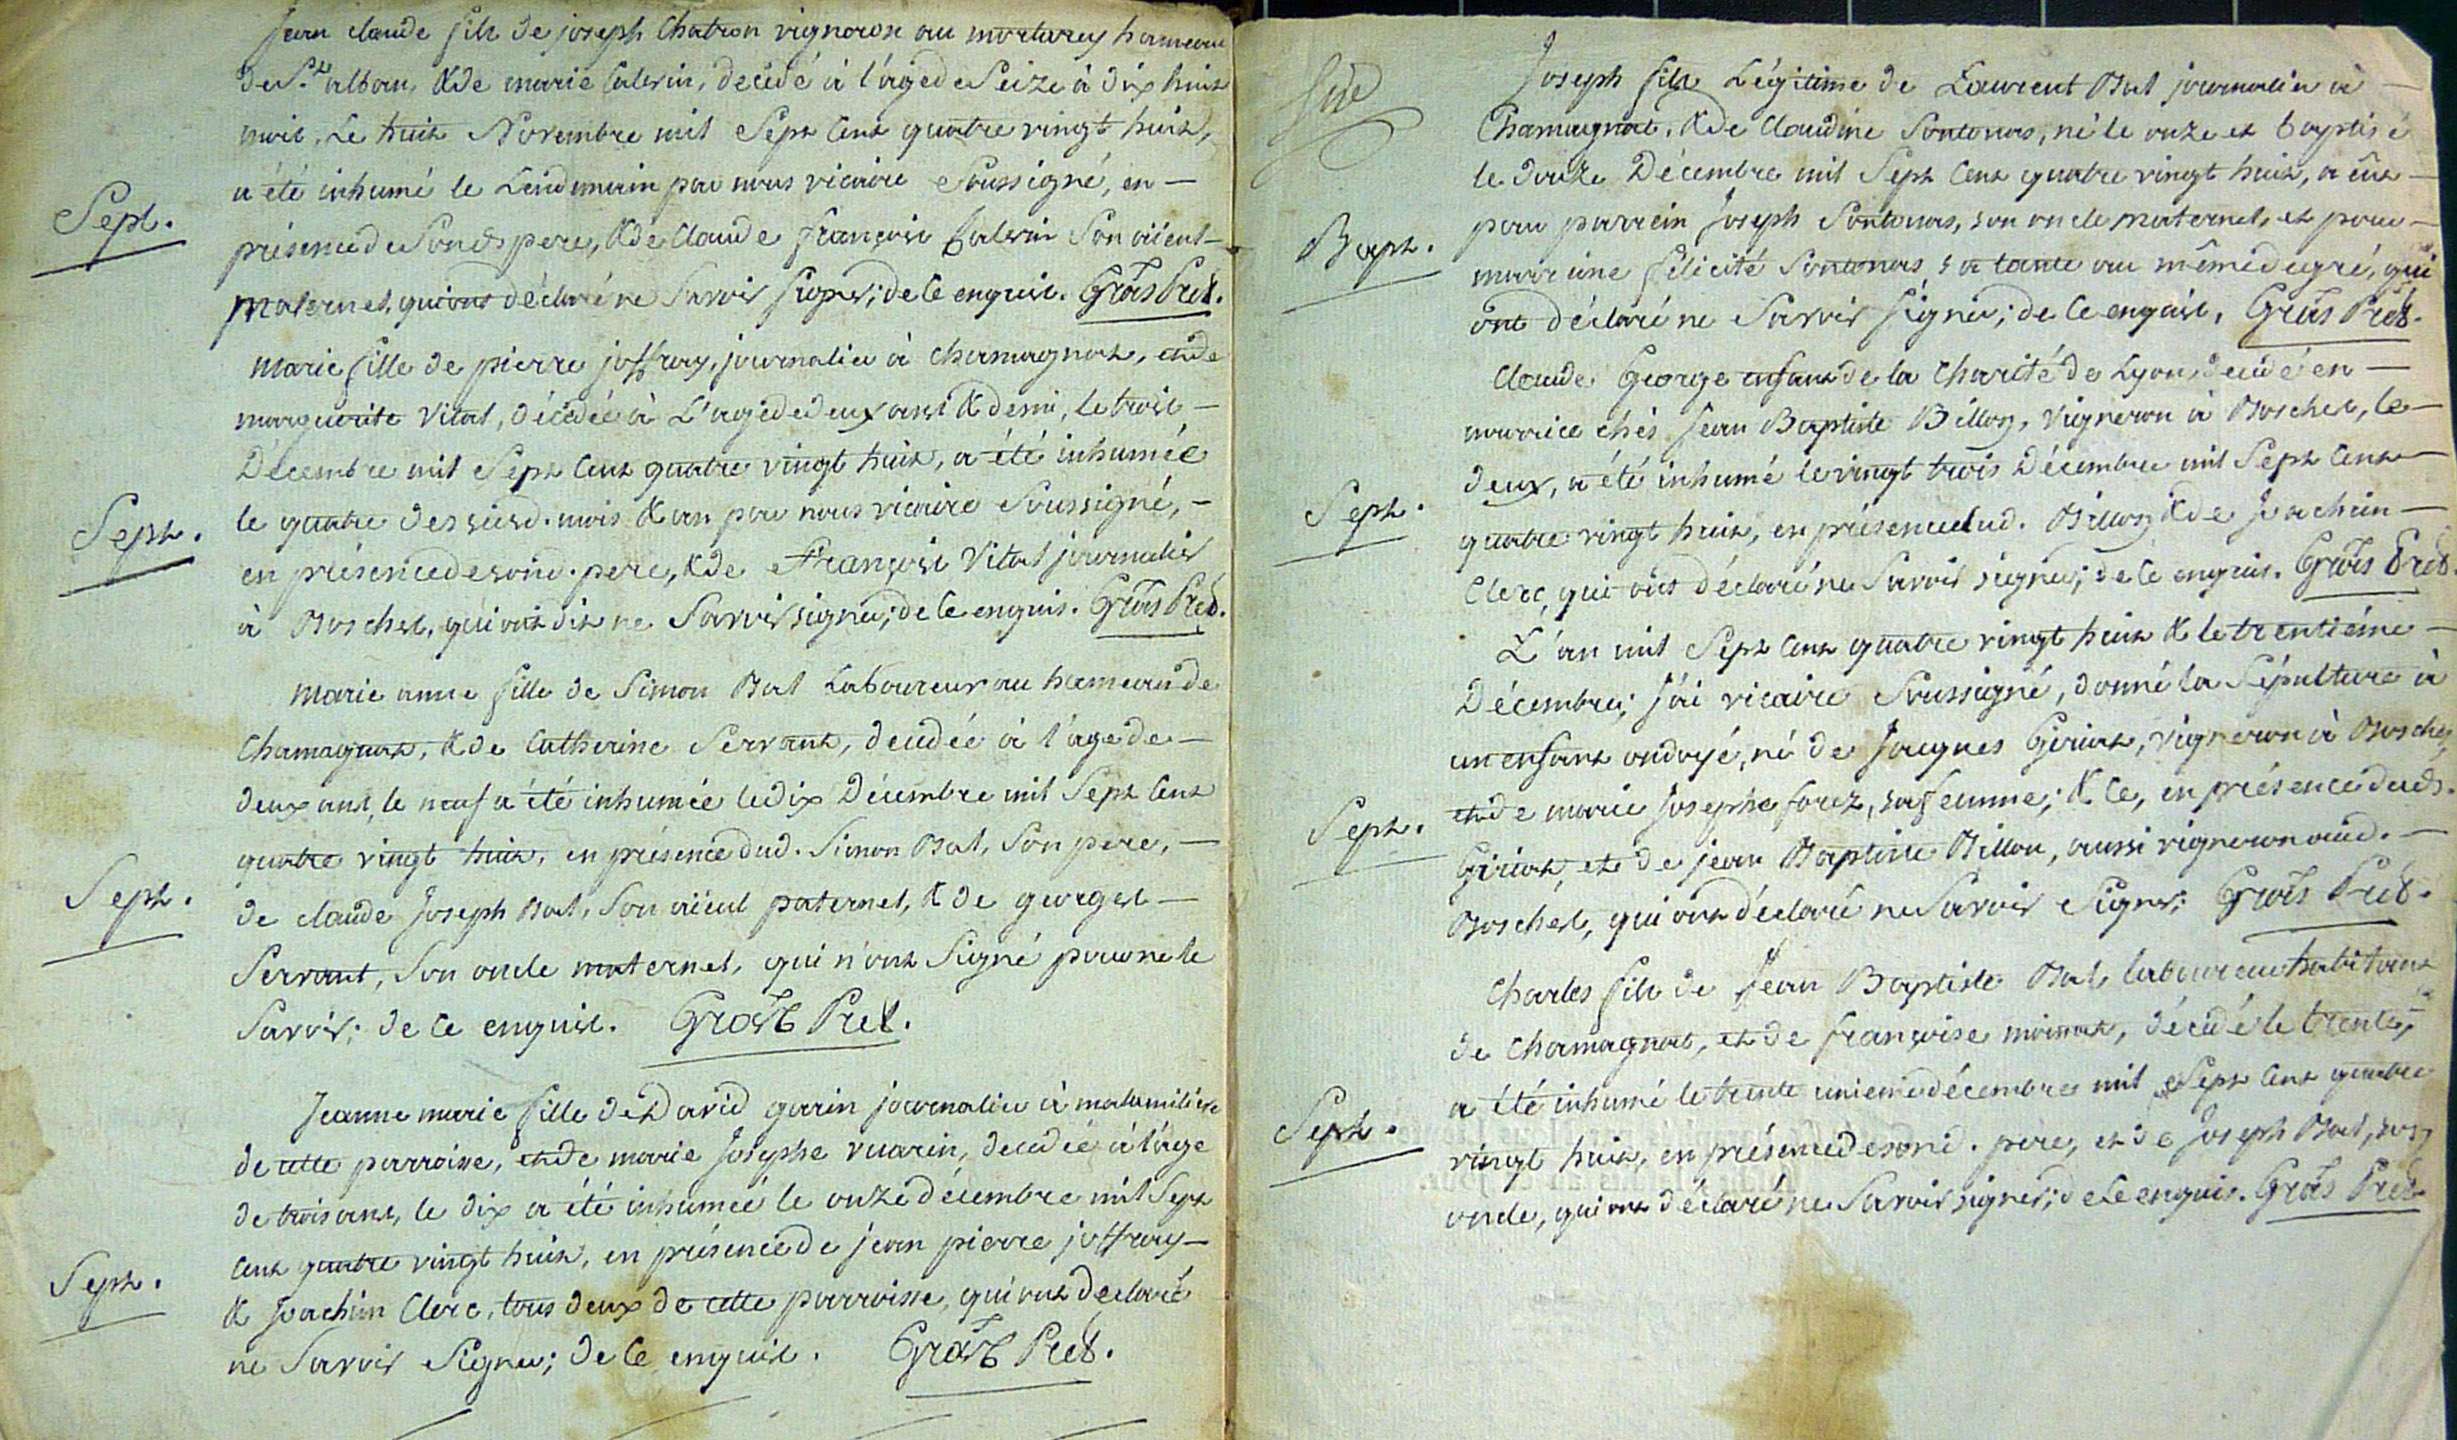 Jean claude fils de joseph Chatron vigneron au mortarey hameau
de St alban, & de marie Calvin, decédé à l'age de Seize à dix huit
mois, Le huit Novembre mil Sept Cent quatre vingt huit,
a été inhumé le Lendemain par nous vicaire Soussigné, en —
Sept.
présence de Sond pere, & de Claude françois Calvin Son aïeul —
maternel, qui ont déclaré ne Savoir Signer; de Ce enquis. Gros Pret.
Marie fille de pierre joffray, journalier à chamagnat, et de
marguerite Vital, décédée à L'age de deux ans & demi, le trois —
Décembre mil Sept Cent quatre vingt huit, a été inhumée
le quatre des susd. mois & an par nous vicaire Soussigné, —
Sept.
en présence de sond. pere, & de François Vital journalier
à Boches, qui ont dit ne Savoir signer; de Ce enquis. Gros Pret.
Marie anne fille de Simon Bal Laboureur au hameau de
Chamagnat, & de Catherine Servant, decédée à l'age de —
deux ans, le neuf a été inhumée le dix Décembre mil Sept Cent
quatre vingt huit, en présence dud. Simon Bal, Son pere, —
Sept.
de claude Joseph Bal, Son aïeul paternel, & de georges —
Servant, Son oncle maternel, qui n'ont Signé pour ne le
Savoir; de Ce enquis. Gros Pret.
Jeanne marie fille de David garin journalier à
de cette parroisse, et de marie Josephe vuarin, decédée à l'âge
de trois ans, le dix a été inhumée le onze décembre mil Sept
Cent quatre vingt huit, en présence de jean pierre joffray —
Sept.
& Joachim Clerc, tous deux de cette parroisse, qui ont declaré
ne Savoir Signer; de Ce enquis. Gros Pret.
Joseph fils Légitime de Laurent Bal journalier à —
Chamagnat, & de Claudine Sontonas, né le onze et baptisé
le douze Décembre mil Sept Cent quatre vingt huit, a eut —
pour parrein Joseph Sontonas, son oncle maternel, et pour —
Bapt.
marreine félicité Sontonas sa tante au même degré, qui
ont déclaré ne Savoir Signer; de Ce enquis, Gros Pret.
Claude George enfant de la Charité de Lyon, decédé en —
nourrice chés Jean Baptiste Billon, Vigneron à Boches, le —
deux, a été inhumé le vingt trois Décembre mil Sept Cent —
Sept.
quatre vingt huit, en présence dud. Billon & de Joachim —
Clerc, qui ont déclaré ne Savoir signer; de Ce enquis. Gros Pret.
L'an mil Sept Cent quatre vingt huit & le trentième —
Décembre; j'ai vicaire Soussigné, donné la Sépulture à
un enfant ondoyé, né de Jacques Giriat, vigneron à Boches,
et de marie Josephe forez, sa femme; & Ce, en présence dud.
Sept.
Giriat, et de jean Baptiste Billon, aussi vigneron aud. —
Boches, qui ont déclaré ne Savoir Signer; Gros Pret.
Charles fils de Jean Baptiste Bal, laboureur habitant
de Chamagnat, et de françoise moinat, décédé le trente,
a été inhumé le trente unieme décembre mil Sept Cent quatre
Sept.
vingt huit, en présence de sond. pere, et de Joseph Bal, son
oncle, qui ont déclaré ne Savoir signer; de Ce enquis. Gros Pret.